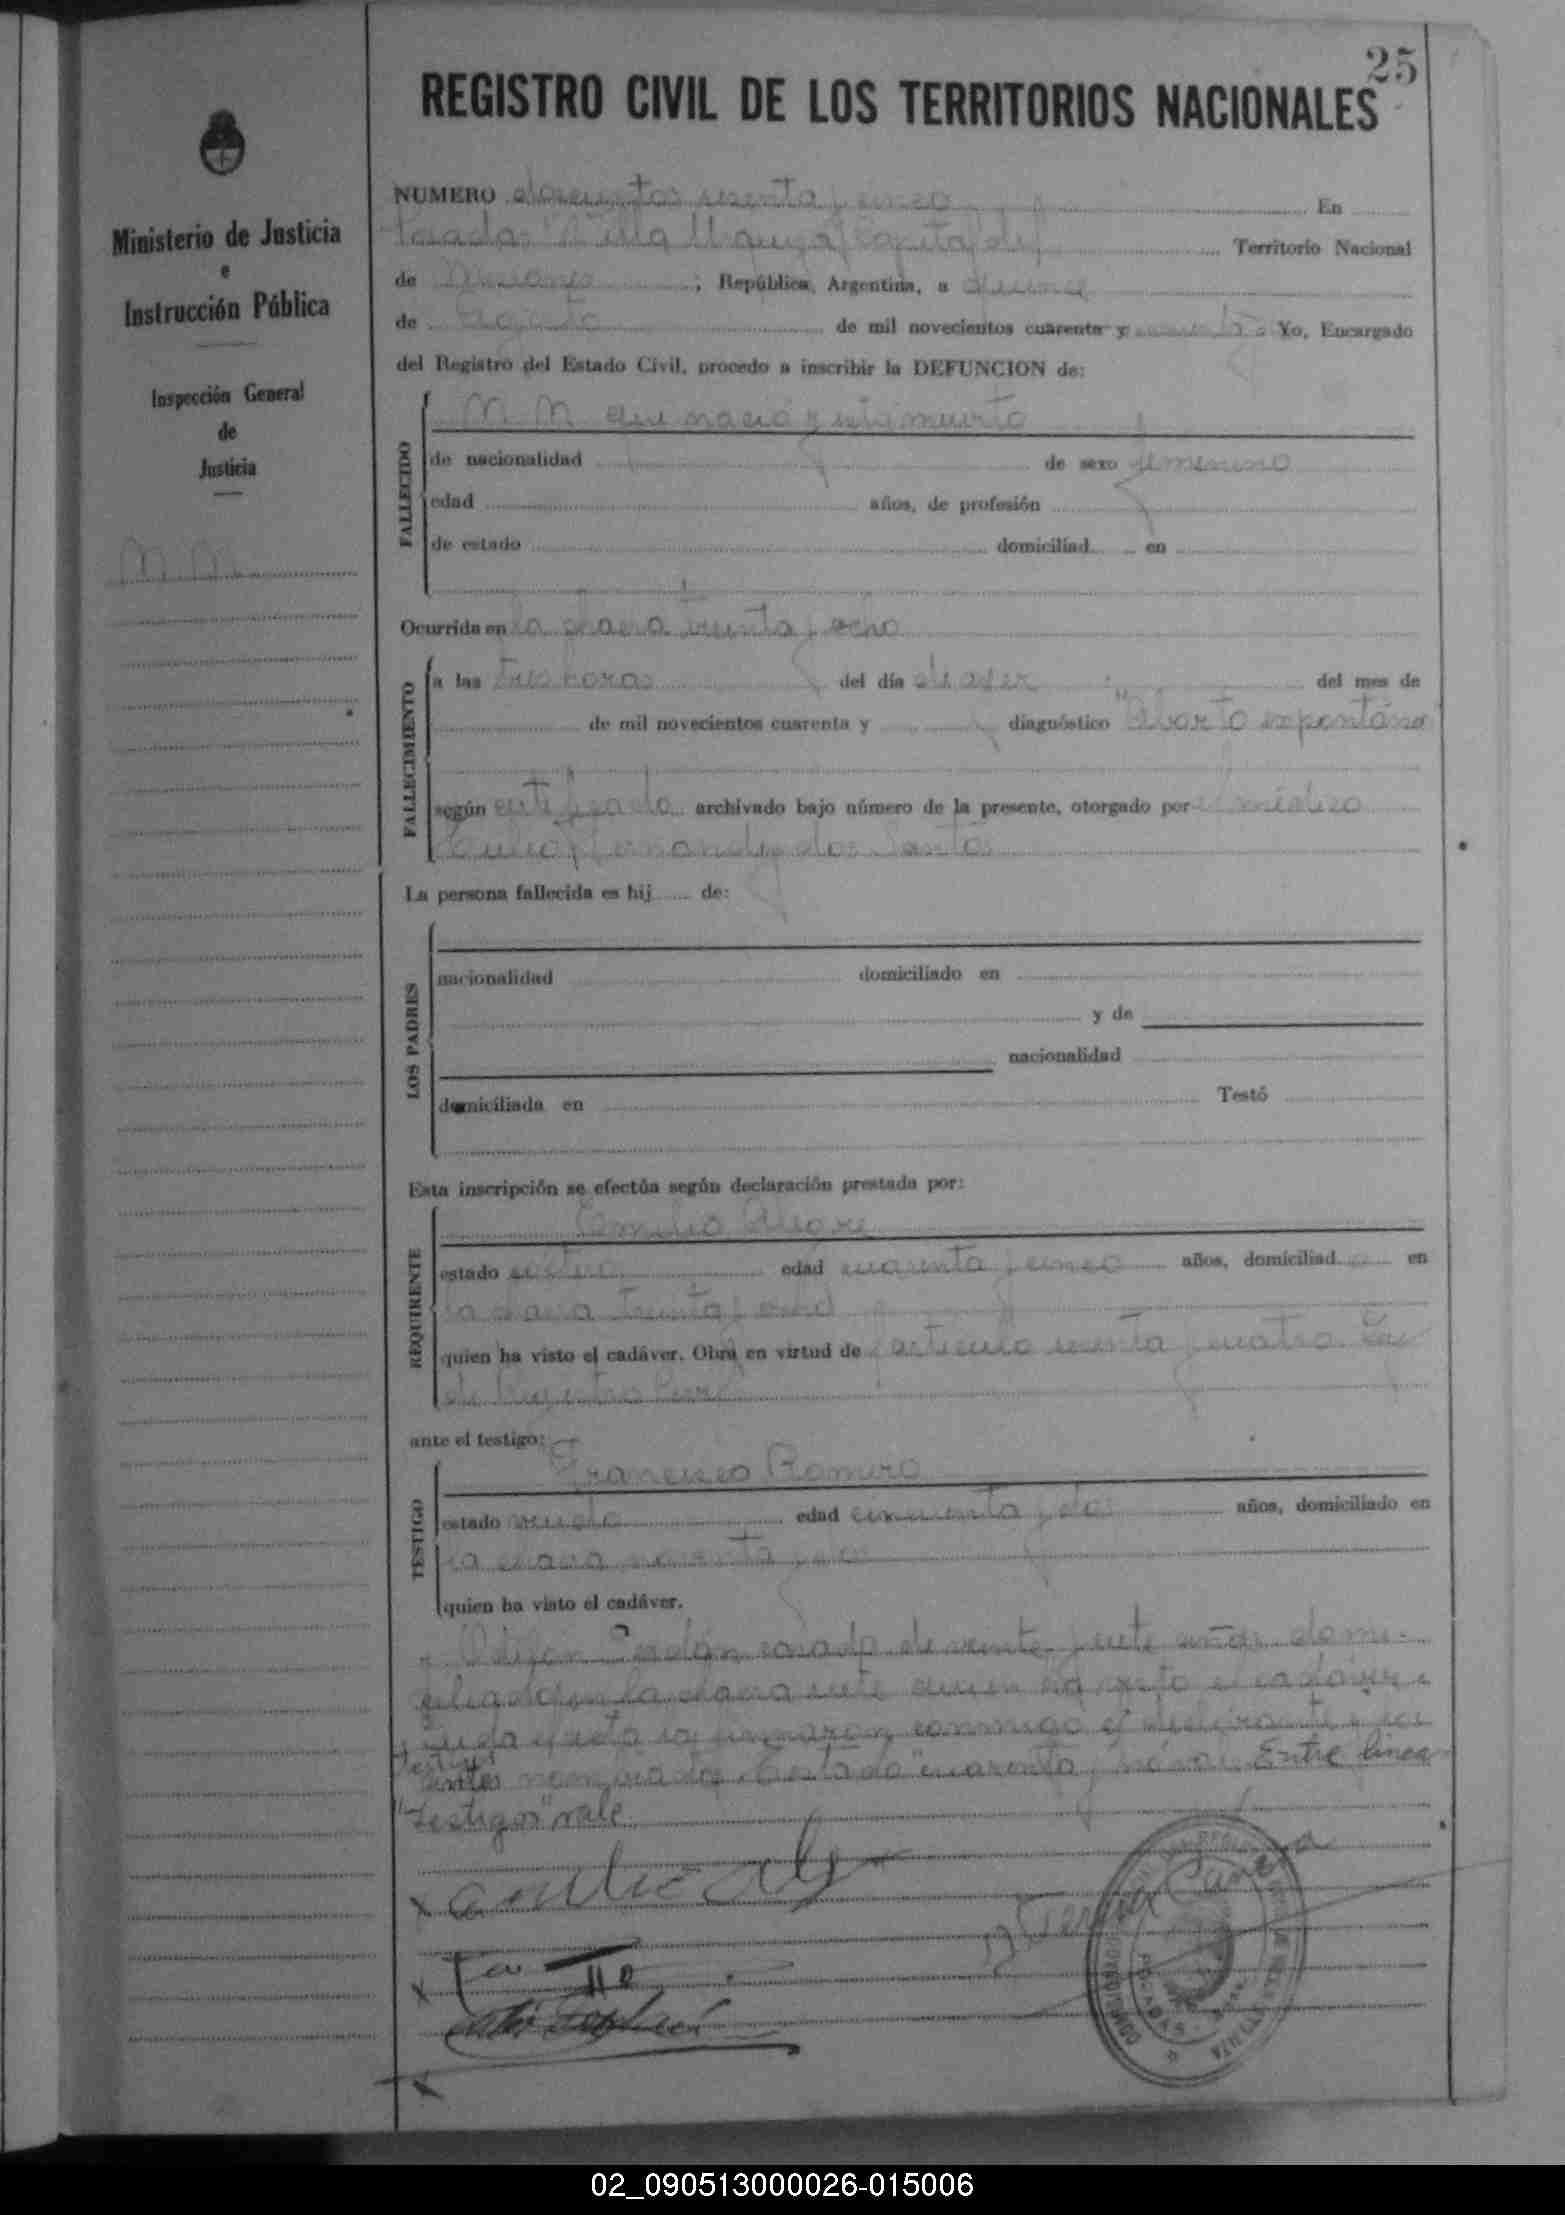 25
REGISTRO CIVIL DE LOS TERRITORIOS NACIONALES
Ministerio de Justicia
e
Instrucción Pública
Inspección General
de
Justicia
N. N.
NUMERO doscientos y cinco En
Posadas "Villa Urquiza" Capital del Territorio Nacional
de Misiones ; República Argentina, a quince
de Agosto de mil novecientos cuarenta y Yo, Encargado
del Registro del Estado Civil, procedo a inscribir la DEFUNCION de:
FALLECIDO
N. N. que nació muerto
de nacionalidad de sexo femenino
edad años, de profesión
de estado domiciliad en
Ocurrida en la chacra treinta y ocho
FALLECIMIENTO
a las tres horas del día de ayer del mes de
de mil novecientos cuarenta y diagnóstico "Aborto expontáneo"
según certificado archivado bajo número de la presente, otorgado por el médico
Fernandez dos Santos
La persona fallecida es hij de:
LOS PADRES
nacionalidad domiciliado en
y de
nacionalidad
domiciliada en Testó
Esta inscripción se efectúa según declaración prestada por:
REQUIRENTE
Emilio Alegre
estado soltero edad cuarenta y cinco años, domiciliado en
la chacra treinta y ocho
quien ha visto el cadáver. Obra en virtud de artículo sesenta y cuatro Ley
de Registro Civil
ante el testigo:
TESTIGO
Francisco Romero
estado viudo edad cincuenta y dos años, domiciliado en
la chacra noventa y dos
quien ha visto el cadáver.
casado de veinte y siete años domi-
ciliado en la chacra siete quien ha visto el cadáver.
Leida el acta la firmaron conmigo el declarante y los
testigos
antes nombrados. Testado "cuarenta y" no vale. Entre linea
"testigos" vale.
Teresa Camera
02_090513000026-015006